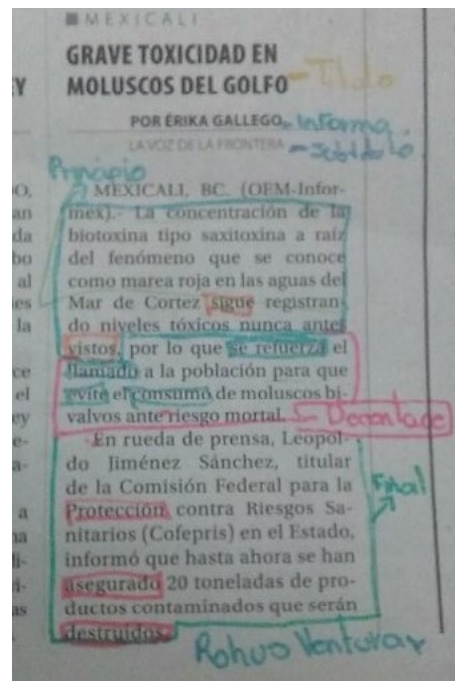 MEXICALI
GRAVE TOXICIDAD EN
MOLUSCOS DEL GOLFO
POR ÉRIKA GALLEGO - Informa
LA VOZ DE LA FRONTERA
Principio
MEXICALI, BC. (OEM-Infor-
mex).- La concentración de la
biotoxina tipo saxitoxina a raíz
del fenómeno que se conoce
como marea roja en las aguas del
Mar de Cortez sigue registran
do niveles tóxicos nunca antes
vistos, por lo que se refuerza el
llamado a la población para que
evite el consumo de moluscos bi-
valvos ante riesgo mortal.
En rueda de prensa, Leopol-
do Jiménez Sánchez, titular
de la Comisión Federal para la
Protección contra Riesgos Sa-
nitarios (Cofepris) en el Estado,
informó que hasta ahora se han
asegurado 20 toneladas de pro-
ductos contaminados que serán
destruidos.
Final